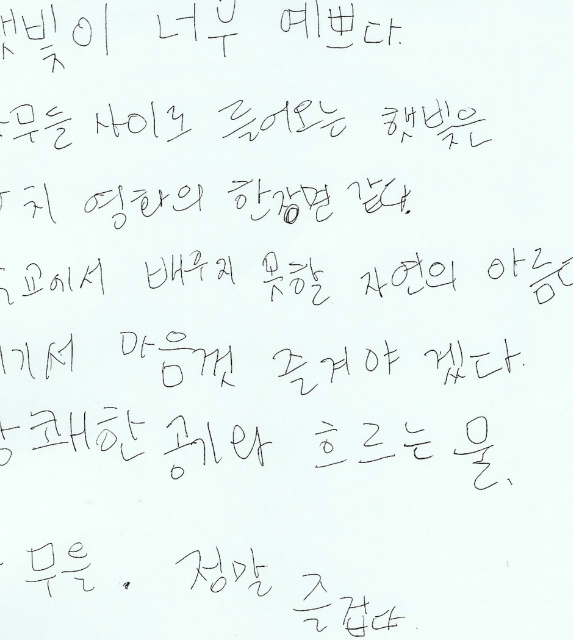 햇빛이 너무 예쁘다.
나무들 사이로 들어오는 햇빛은
마치 영화의 한장면 같다.
학교에서 배우지 못할 자연의 아름
여기서 마음껏 즐겨야 겠다.
상쾌한 공기와 흐르는 물,
나무들. 정말 즐겁다